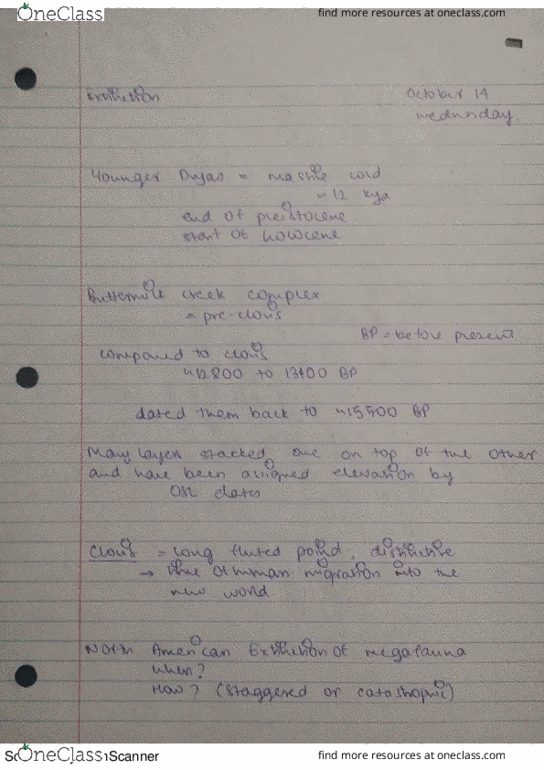 OneClass
find more resources at oneclass.com
Extinction
October 14
wednesday.
Younger Dryas = massive cold
~12 kya
end of pleistocene
start of holocene
Buttermilk creek complex
= pre-clovis
BP = before present
compared to clovis
~12800 to 13100 BP
dated them back to ~15500 BP
Many layers stacked one on top of the other
and have been assigned elevation by
OSL dates
Clovis = long fluted point, distinctive
→ time of human migration into the
new world
North American Extinction of megafauna
when?
How? (staggered or catastrophic)
OneClass
Scanner
find more resources at oneclass.com